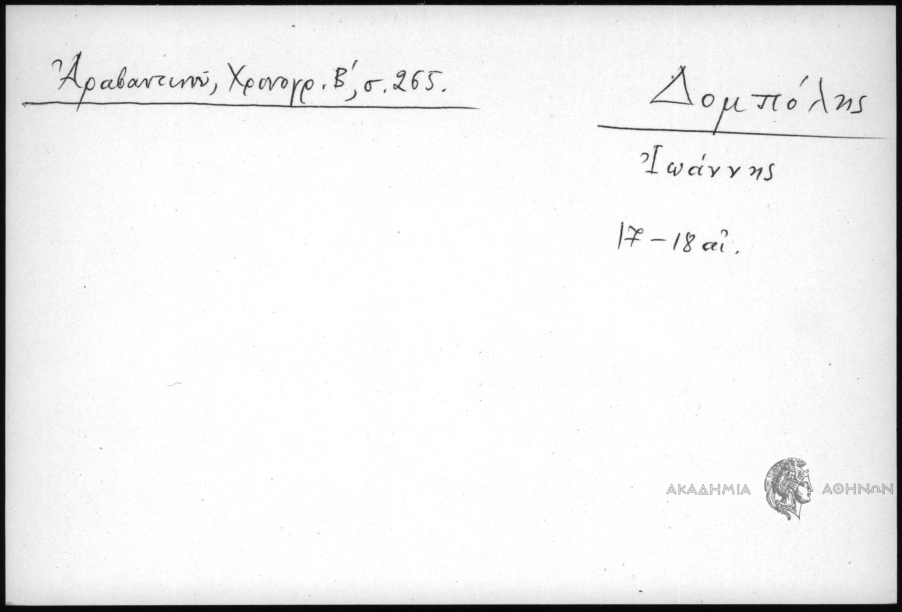 Ἀραβαντινοῦ, Χρονογρ. Β', σ. 265.
Δομπόλης
Ἰωάννης
17-18 αἰ.
ΑΚΑΔΗΜΙΑ ΑΘΗΝΩΝ